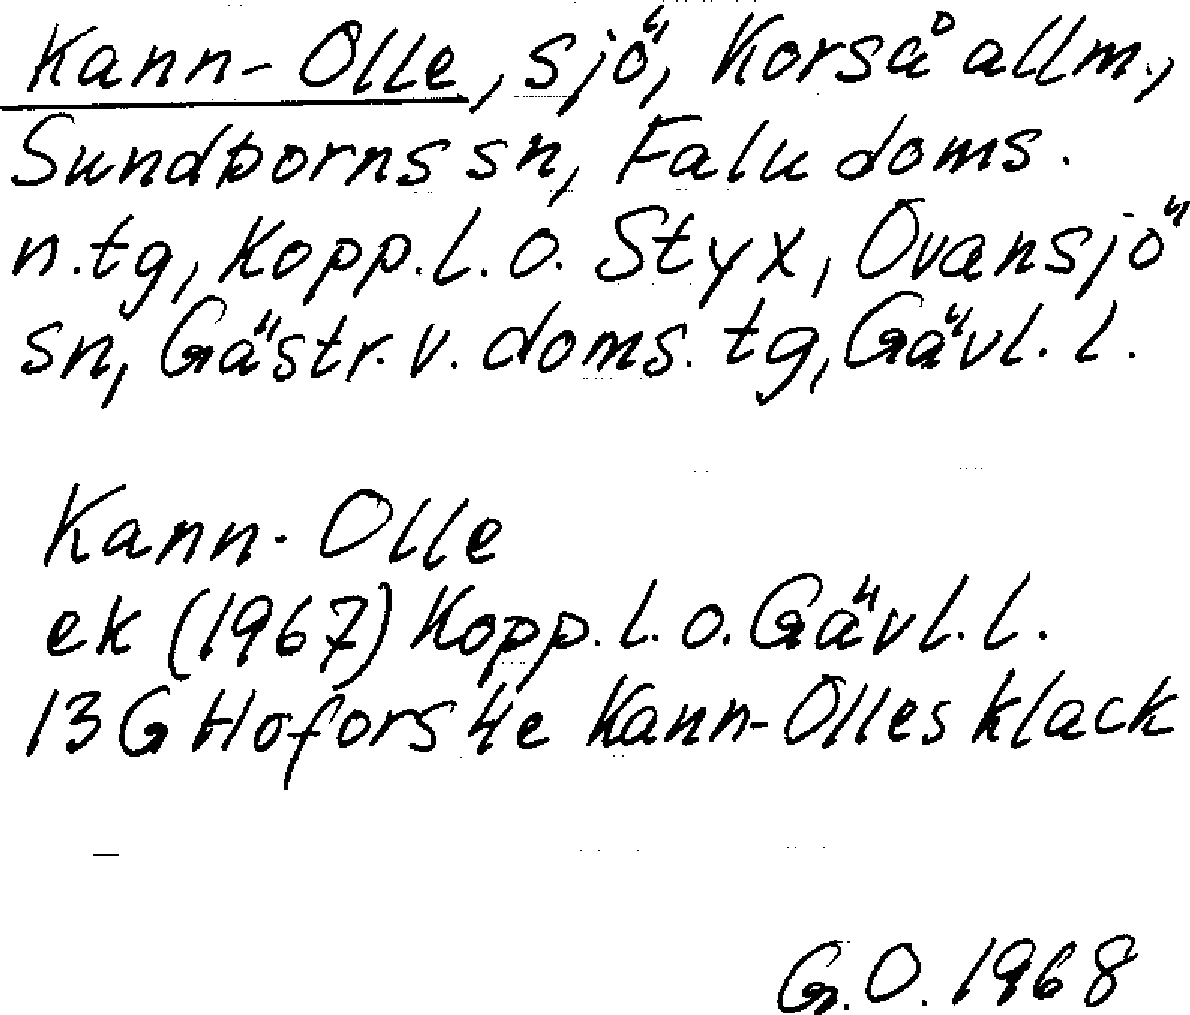 Kann-Olle, sjö, Korså allm.,
Sundborns sn, Falu doms.
n. tg, Kopp. l. o. Styx, Ovansjö
sn, Gästr. v. doms. tg, Gävl. l.
Kann-Olle
ek (1967) Kopp. l. o. Gävl. l.
13 G Hofors 4e Kann-Olles klack
G. O. 1968